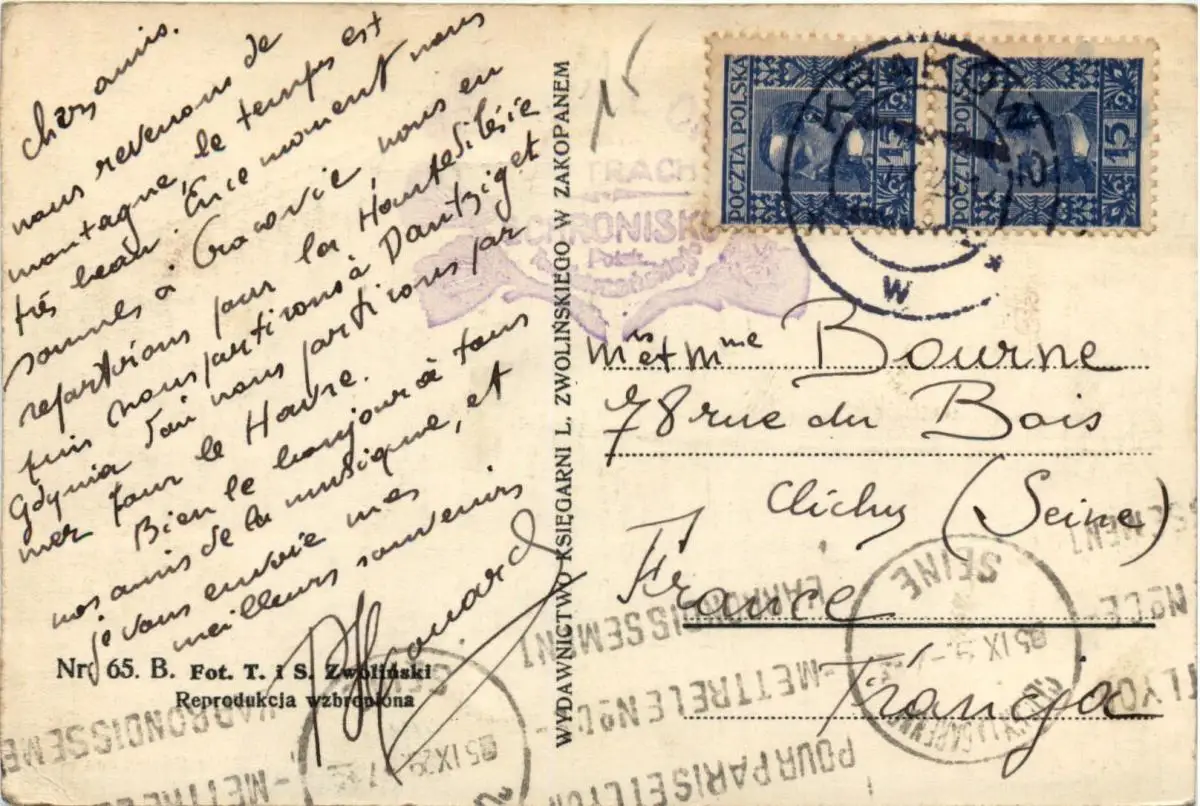 Chers amis.
nous revenons de
montagne, le temps est
très beau. En ce moment nous
sommes à Cracovie nous en
repartirons pour la Haute Silésie
puis nous partirons à Dantzig et
Gdynia d'ou nous partirons par
mer pour le Havre.
Bien le bonjour à tous
nos amis de la musique, et
je vous envoie mes
meilleurs souvenirs
Nr. 65. B. Fot. T. i S. Zwoliński
Reprodukcja wzbroniona
WYDAWNICTWO KSIĘGARNI L. ZWOLIŃSKIEGO W ZAKOPANEM
15
POCZTA POLSKA
15
POCZTA POLSKA
15
KRAKÓW
SCHRONISKO
Mr et Mme Bourne
78 rue du Bois
Clichy (Seine)
France
Francja
SEINE
POUR PARIS ET LYON
-METTRE LE No DE-
L'ARRONDISSEMENT
SEINE
-METTRE LE
L'ARRONDISSEMENT